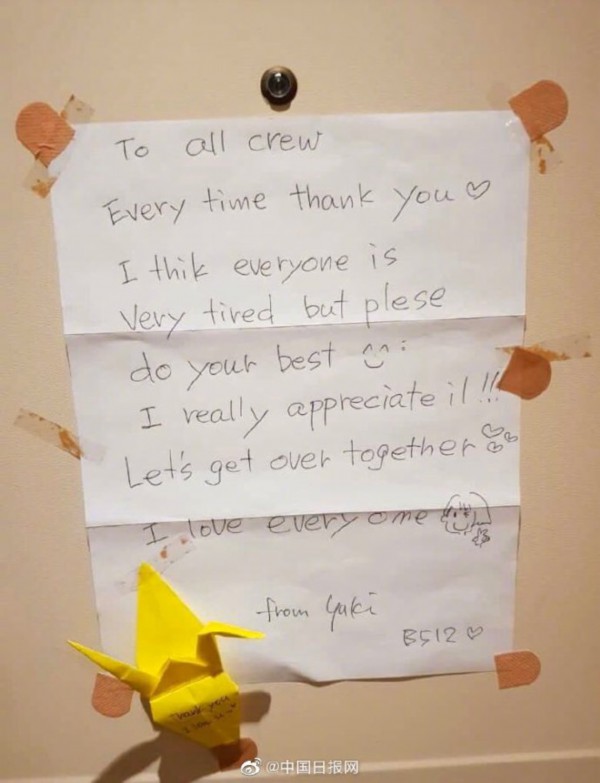 To all crew
Every time thank you ♡
I thik everyone is
Very tired but plese
do your best
I really appreciate it!!
Let's get over together
I love everyone
from Yuki
B512 ♡
Thank you
@中国日报网